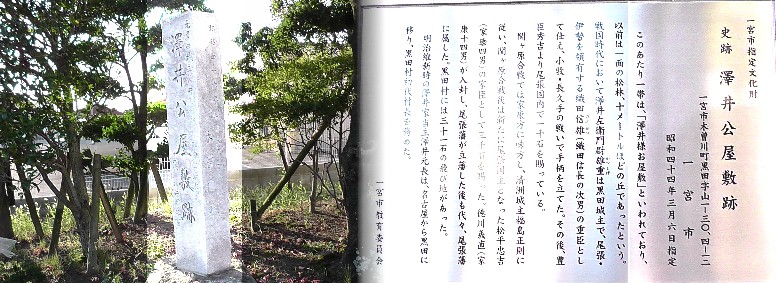 澤井公屋敷跡
一宮市指定文化財
史跡 澤井公屋敷跡
一宮市木曽川町黒田字山一-三〇、四-一二
一宮市
昭和四十四年三月六日指定
このあたり一帯は、「澤井様お屋敷」といわれており、
以前は一面の松林、十メートルほどの丘であったという。
戦国時代において澤井左衛門尉雄重は黒田城主で、尾張・
伊勢を領有する織田信雄(織田信長の次男)の重臣とし
て仕え、小牧・長久手の戦いで手柄を立てた。その後、豊
臣秀吉より尾張国内で一千石を賜っている。
関ヶ原合戦では家康方に味方し、清洲城主福島正則に
従い、関ヶ原合戦後は新たに尾張国主となった松平忠吉
(家康四男)の家臣として
徳川義直(家
康十四男)が入封し、尾張藩が立藩した後も代々、尾張藩
に属した。黒田村には三十一石の飛び地があった。
明治維新時の澤井家当主澤井元長は、名古屋から黒田に
移り、黒田村初代村長を務めた。
一宮市教育委員会